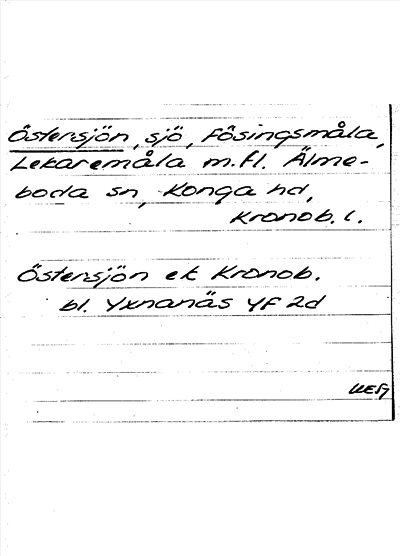 Östersjön, sjö, Fösingsmåla,
Lekaremåla m.fl. Älme-
boda sn, Konga hd,
Kronob. l.
Östersjön ek Kronob.
bl. Yxnanäs YF 2d